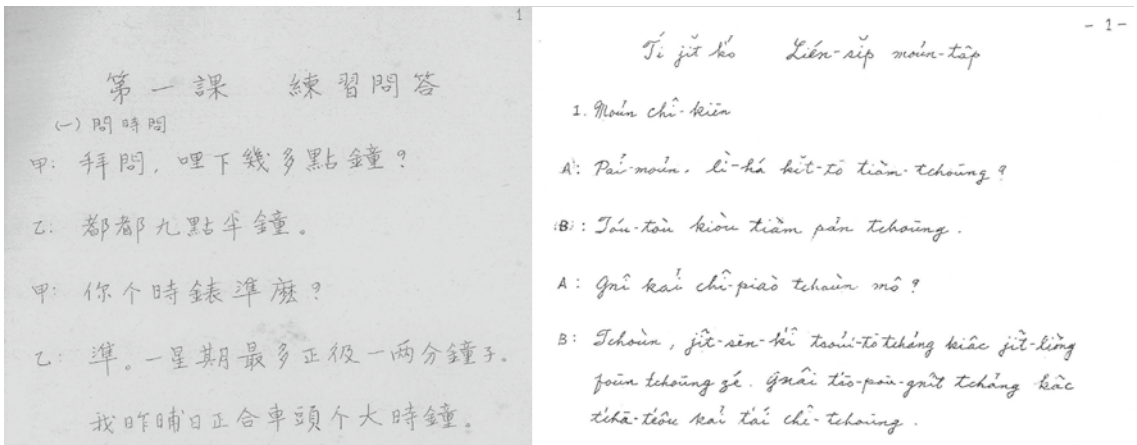 1
第一課 練習問答
(一) 問時間
甲: 拜問, 哩下幾多點鐘?
乙: 都都九點半鐘。
甲: 你个時錶準麽?
乙: 準。一星期最多正 一两分鐘子。
我昨晡日正合車頭个大時鐘。
- 1 -
Tí jĭt kó Lién-sĭp moún-tăp
1. Moún chî-kiēn
A: Pái-moún, lì-há kĭt-tō tiàm-tchoūng?
B: Toú-toù kiòu tiàm pán tchoūng.
A: Gnî kaí chî-piaò tchoùn mô?
B: Tchoùn, jĭt-sēn-kî tsoúi-tō tcháng kiăc jĭt-liòng
foūn tchoūng zé. Gnâi tsŏ-poū-gnĭt tcháng kăc
tchā-têou kaí tái chî-tchoūng.